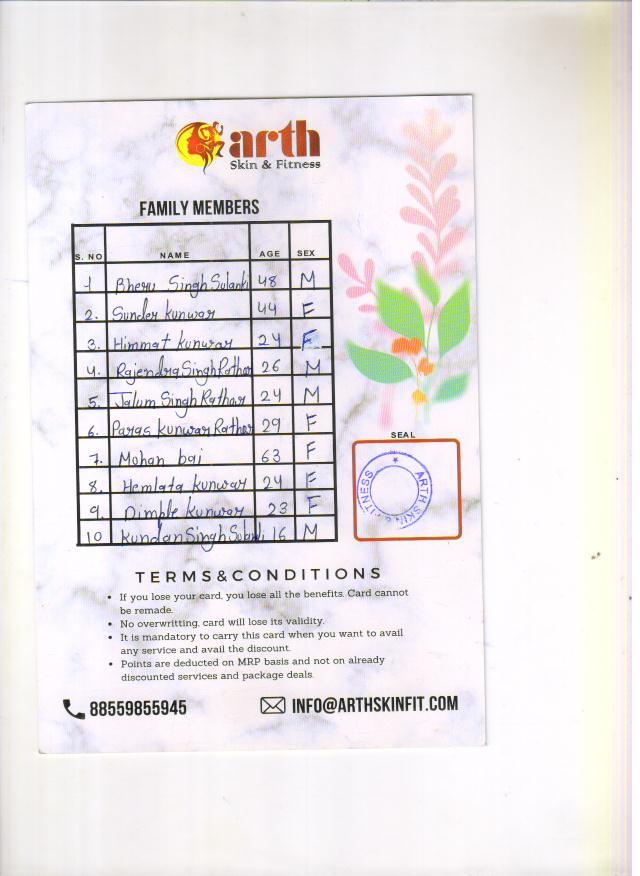 arth
Skin & Fitness
FAMILY MEMBERS
S. NO NAME AGE SEX
1 Bheru Singh Solanki 48 M
2. Sunder kunwar 44 F
3. Himmat kunwar 24 F
4. Rajendra Singh Rathor 26 M
5. Jalum Singh Rathor 24 M
6. Paras kunwar Rathor 29 F
7. Mohan bai 63 F
8. Hemlata kunwar 24 F
9. Dimple kunwar 23 F
10 Kundan Singh Solanki 16 M
SEAL
ARTH SKIN & FITNESS
TERMS&CONDITIONS
• If you lose your card, you lose all the benefits. Card cannot
be remade.
• No overwritting, card will lose its validity.
• It is mandatory to carry this card when you want to avail
any service and avail the discount.
• Points are deducted on MRP basis and not on already
discounted services and package deals.
88559855945 INFO@ARTHSKINFIT.COM